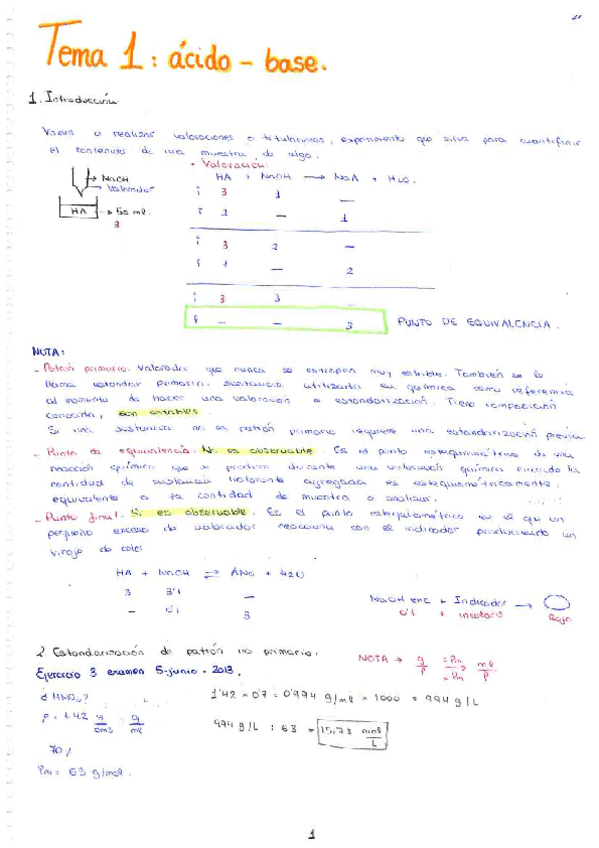 Tema 1: ácido - base.
1. Introducción
Vamos a realizar valoraciones o titulaciones, experimento que sirve para cuantificar
el contenido de una muestra de algo.
- Valoración:
HA + NaOH → NaA + H2O.
→ NaOH
Valorador
HA → 50 ml.
3
i 3 1 —
f 2 — 1
i 3 2 —
f 1 — 2
i 3 3 —
f — — 3 PUNTO DE EQUIVALENCIA.
NOTA:
- Patrón primario. Valorador que nunca se estropea muy estable. También se le
llama estándar primario. sustancia utilizada en química como referencia
al momento de hacer una valoración o estandarización. Tiene composición
conocida, son estables.
Si una sustancia no es patrón primario requiere una estandarización previa.
- Punto de equivalencia. No es observable. Es el punto estequiométrico de una
reacción química que se produce durante una valoración química cuando la
cantidad de sustancia valorante agregada es estequiométricamente
equivalente a la cantidad de muestra a analizar.
- Punto final. Si es observable. Es el punto estequiométrico en el que un
pequeño exceso de valorador reacciona con el indicador produciendo un
virage de color
HA + NaOH ⇌ ANa + H2O
3 3'1 —
— 0'1 3
NaOH exc + Indicador →
0'1 + incoloro Rojo
2. Estandarización de patrón no primario.
Ejercicio 3 examen 5-junio-2013.
¿HNO3?
ρ = 1.42 g/cm3 g/ml
70%
Pm = 63 g/mol.
1'42 × 0'7 = 0'994 g/ml × 1000 = 994 g/L
994 g/L : 63 = 15,78 mol/L
1